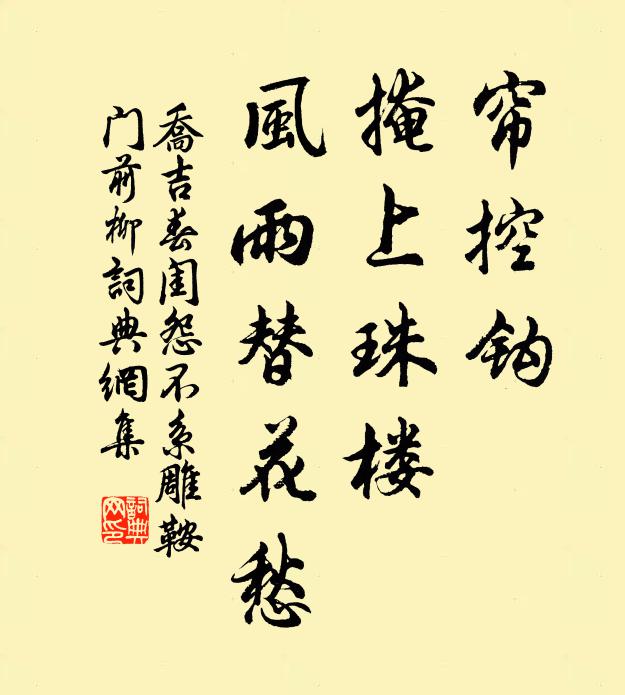 帘控钩
掩上珠楼
風雨替花愁
喬吉春闺怨不系雕鞍
门前柳詞典網集
詞典
网印